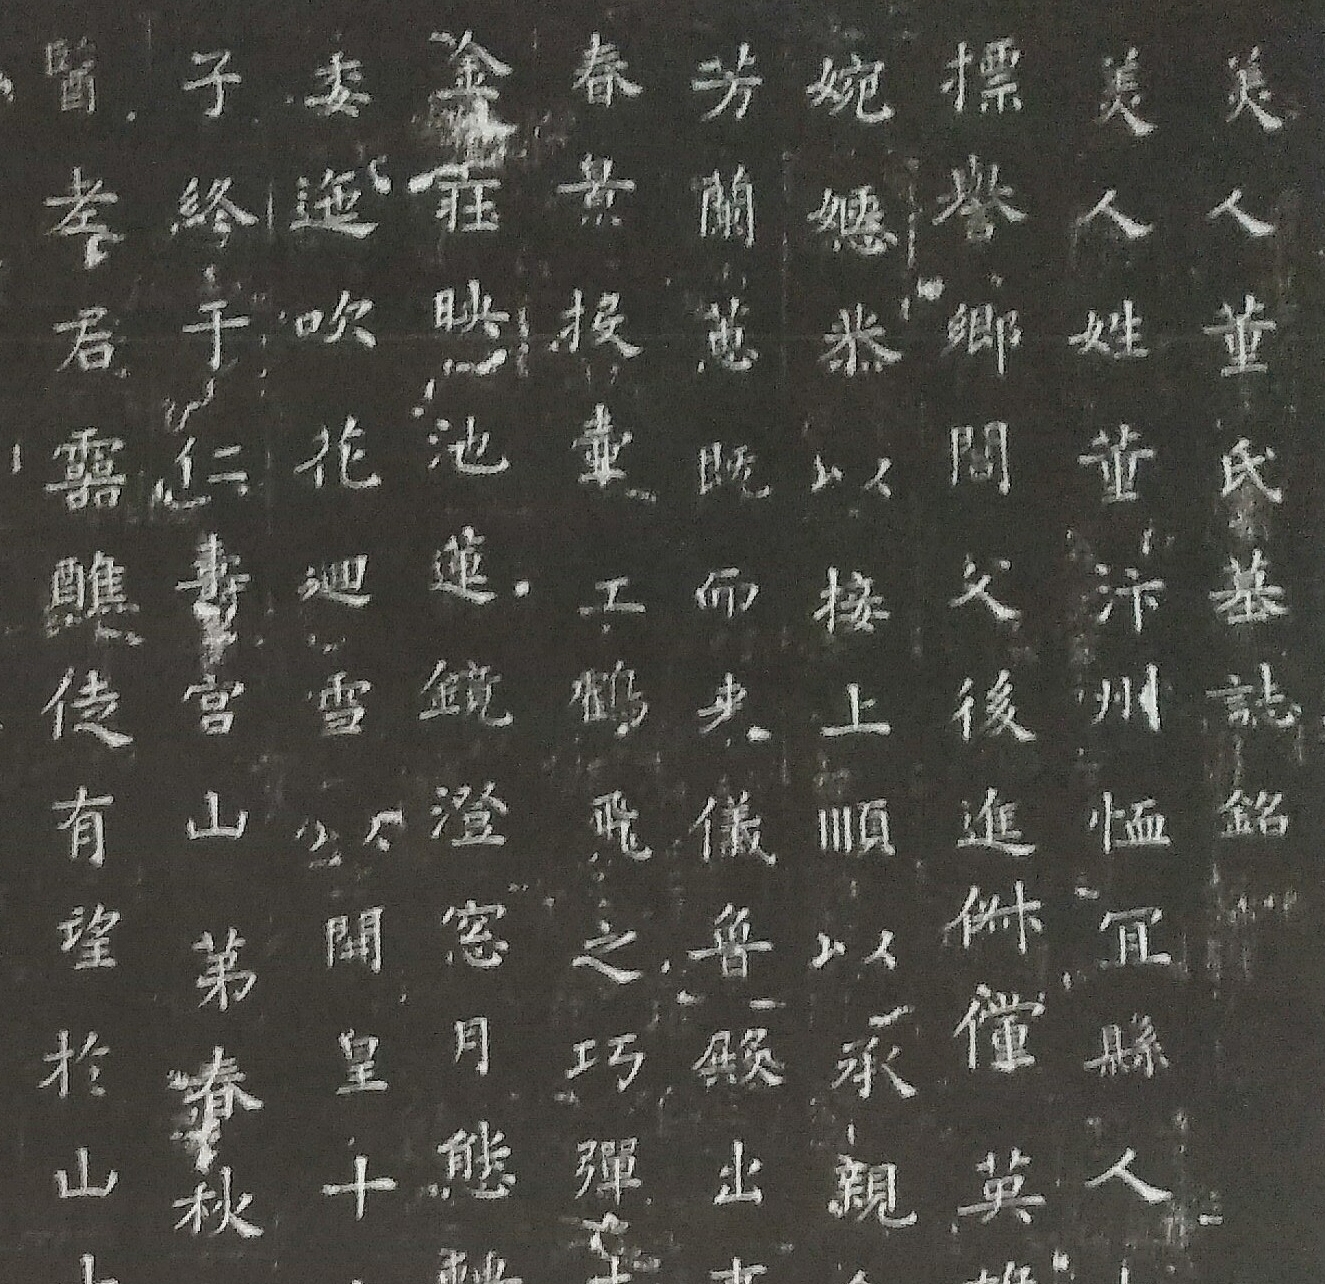 美人董氏墓誌銘
美人姓董汴州恤冝縣人
摽譽鄉閭父後進俶儻英雄
婉嬺恭以接上順以承親
芳蘭蕙既而来儀魯殿出
春景投壷工鶴飛之巧彈
金莊映池蓮鏡澄窓月態轉
委迤吹花迴雪以開皇十
子終于仁壽宮山第春秋
醫老君靈醮徒有望於山